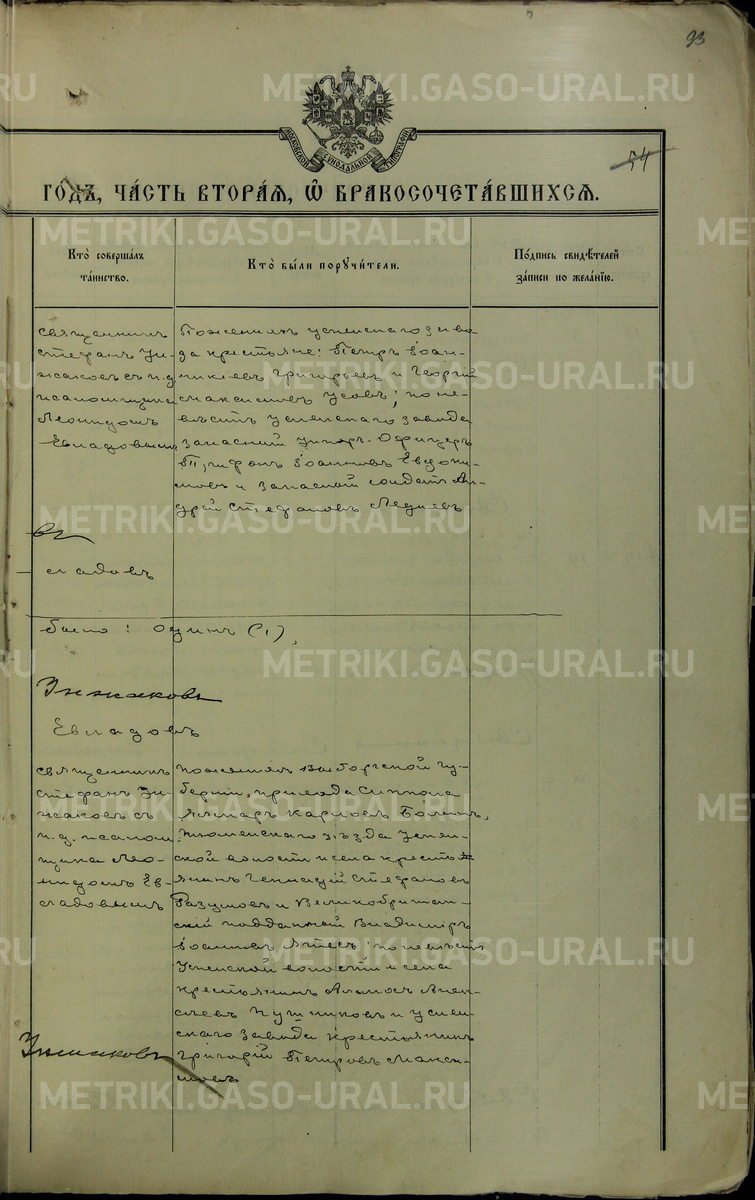 93
МОСКОВСКОЙ СѴНОДАЛЬНОЙ ТИПОГРАФІИ
54
ГО́ДЪ, ЧА́СТЬ ВТОРА́Я, Ѽ БРАКОСОЧЕТА́ВШИХСЯ.
Кто̀ соверша́лъ
та́инство.
Кто̀ бы́ли порꙋчи́тели.
По́дпись свидѣ́телей
за́писи по жела́нїю.
священникъ
Стефанъ Ун-
жаковъ съ и. д.
псаломщика
Леонидомъ
Евладовымъ
По женихѣ Успенскаго заво-
да крестьяне: Петръ Іоан-
никіевъ Григорьевъ и Георгій
Максимовъ Усовъ; по не-
вѣстѣ Успенскаго завода
запасный унтеръ-офицеръ
Трифонъ Іоанновъ Евдоки-
мовъ и запасный солдатъ Ан-
дрей Стефановъ Ледневъ
Ев
ладовъ
было: Одинъ (1),
Унжаковъ
Евладовъ
священникъ
Стефанъ Ун-
жаковъ съ
и. д. псалом-
щика Лео-
нидомъ Ев-
ладовымъ
по женихѣ Выборгской гу-
берніи, прихода
Карловъ
Тюменскаго уѣзда Успен-
ской волости и села кресть-
янинъ Геннадій Стефановъ
Разумовъ и Великобритан-
скій подданный Владиміръ
Іоанновъ Ятесъ; по невѣстѣ
Успенской волости и села
крестьянинъ Алек-
сѣевъ и Успен-
скаго завода крестьянинъ
Григорій Петровъ Макси-
мовъ
Унжаковъ
METRIKI.GASO-URAL.RU